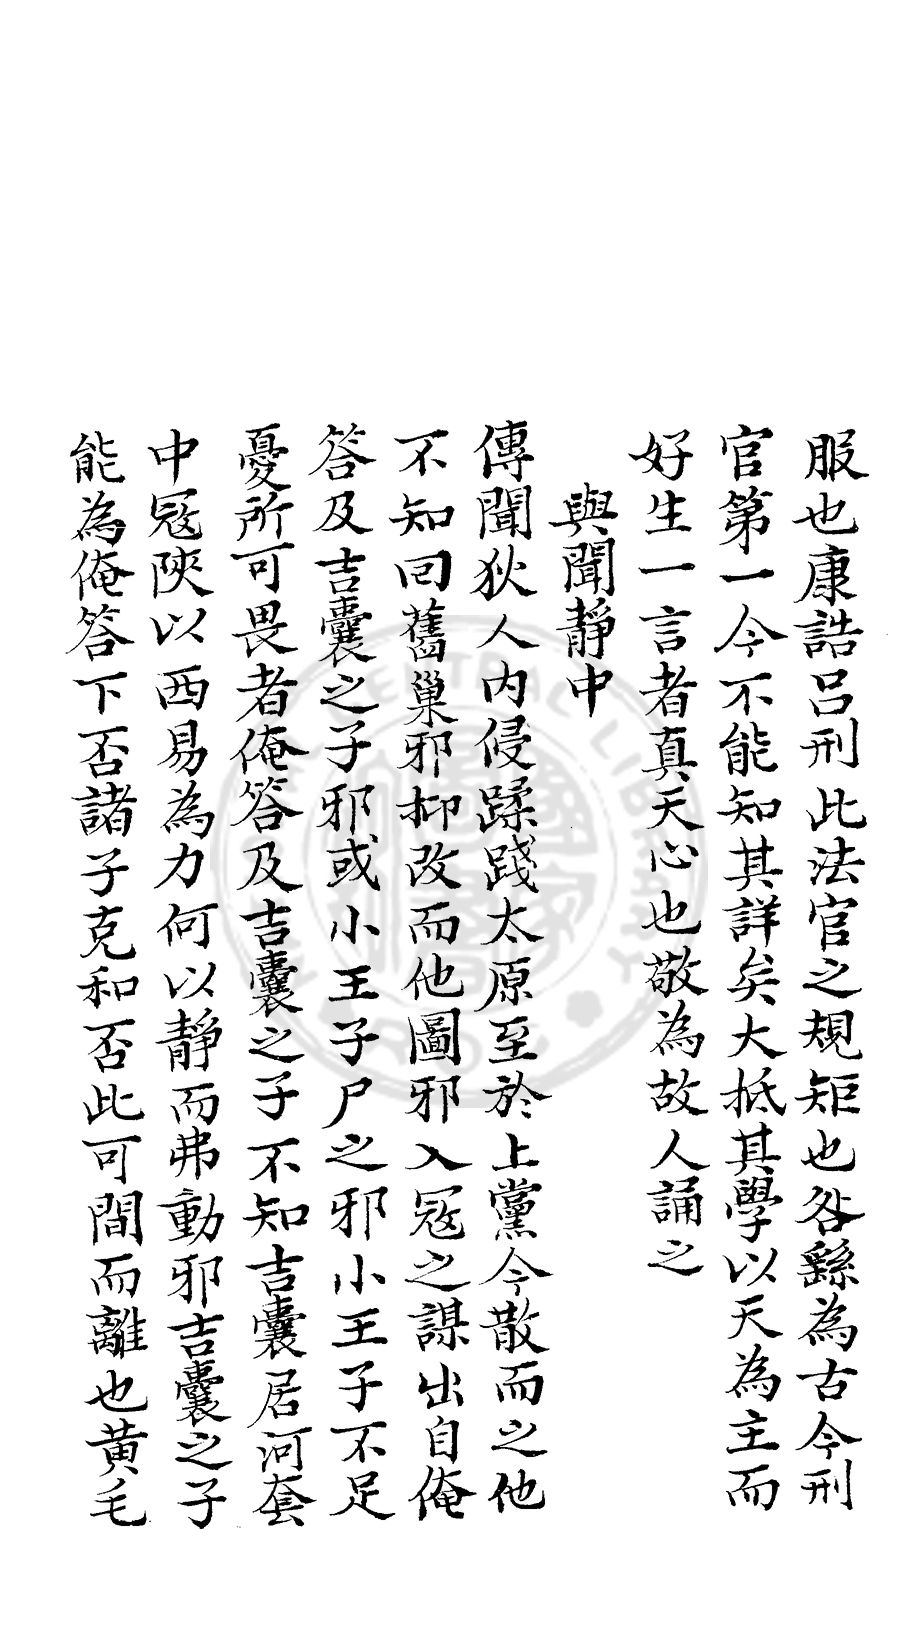 服也康誥呂刑此法官之規矩也咎繇為古今刑
官第一今不能知其詳矣大抵其學以天為主而
好生一言者真天心也敬為故人誦之
與聞靜中
傳聞狄人内侵蹂踐太原至於上黨今散而之他
不知回舊巢邪抑改而他圖邪入冦之謀出自俺
答及吉囊之子邪或小王子尸之邪小王子不足
憂所可畏者俺答及吉囊之子不知吉囊居河套
中冦陝以西易為力何以靜而弗動邪吉囊之子
能為俺答下否諸子克和否此可間而離也黄毛